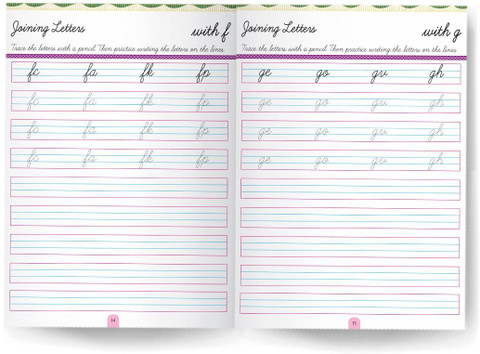 Joining Letters with f
Trace the letters with a pencil. Then practice writing the letters on the lines.
fc fa fk fp
fc fa fk fp
fc fa fk fp
fc fa fk fp
14
Joining Letters with g
Trace the letters with a pencil. Then practice writing the letters on the lines.
ge go gv gh
ge go gv gh
ge go gv gh
ge go gv gh
15